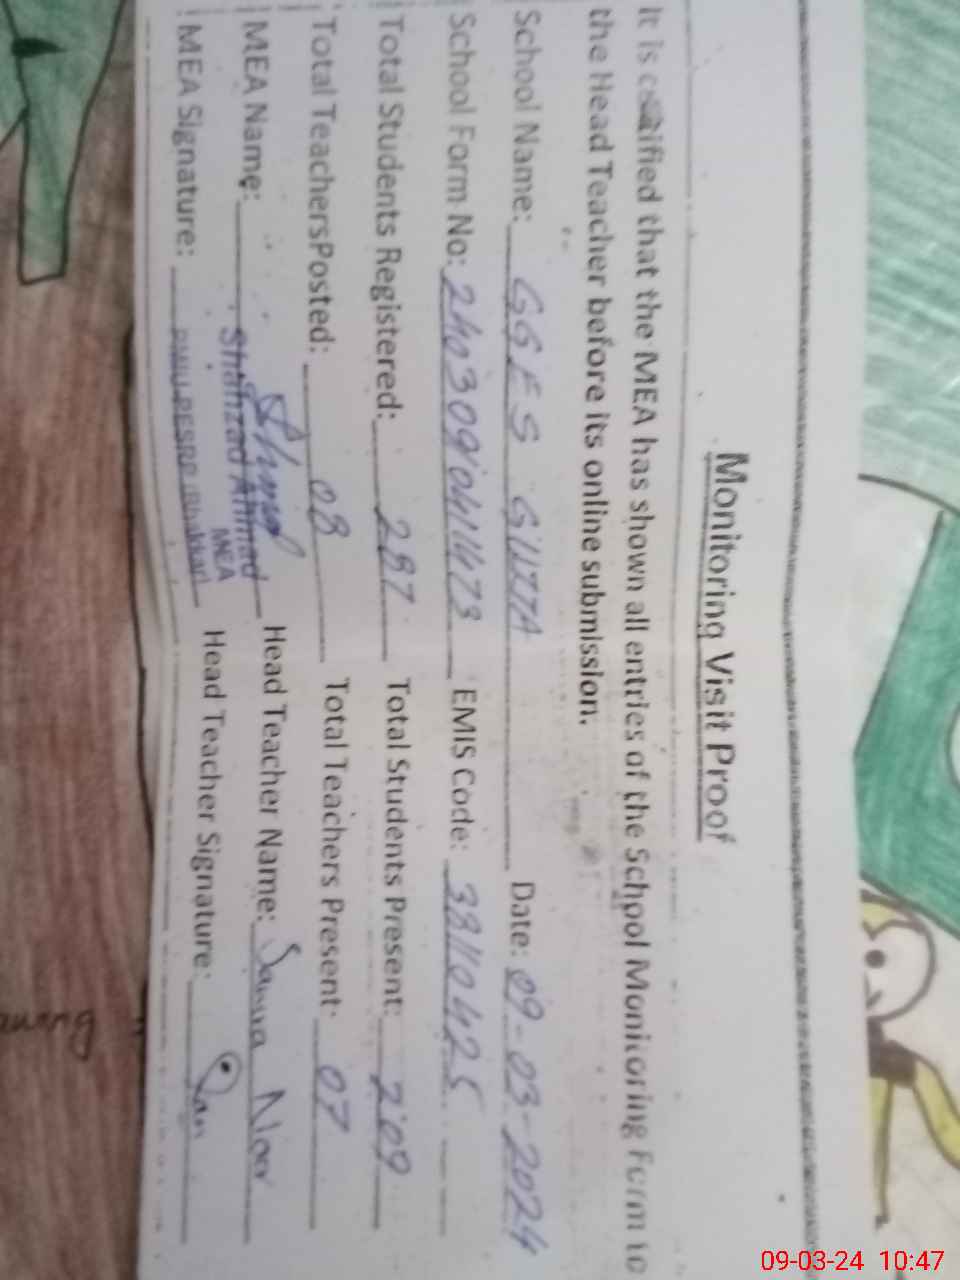 Monitoring Visit Proof
It is certified that the MEA has shown all entries of the School Monitoring Form to
the Head Teacher before its online submission.
School Name: GGES GUJJA Date: 09-03-2024
School Form No: 2403090411473 EMIS Code: 38110425
Total Students Registered: 287 Total Students Present: 209
Total TeachersPosted: 08 Total Teachers Present: 07
MEA Name: Shahzad Ahmad Head Teacher Name: Samua Noor
MEA
MEA Signature: PMIU PESRP (Bhakkar) Head Teacher Signature:
09-03-24 10:47